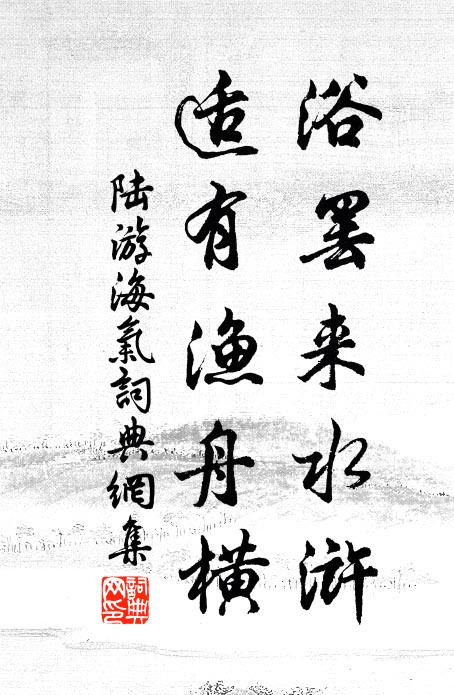 浴罢来水滸
适有渔舟横
陆游海氣詞典網集
詞典網印